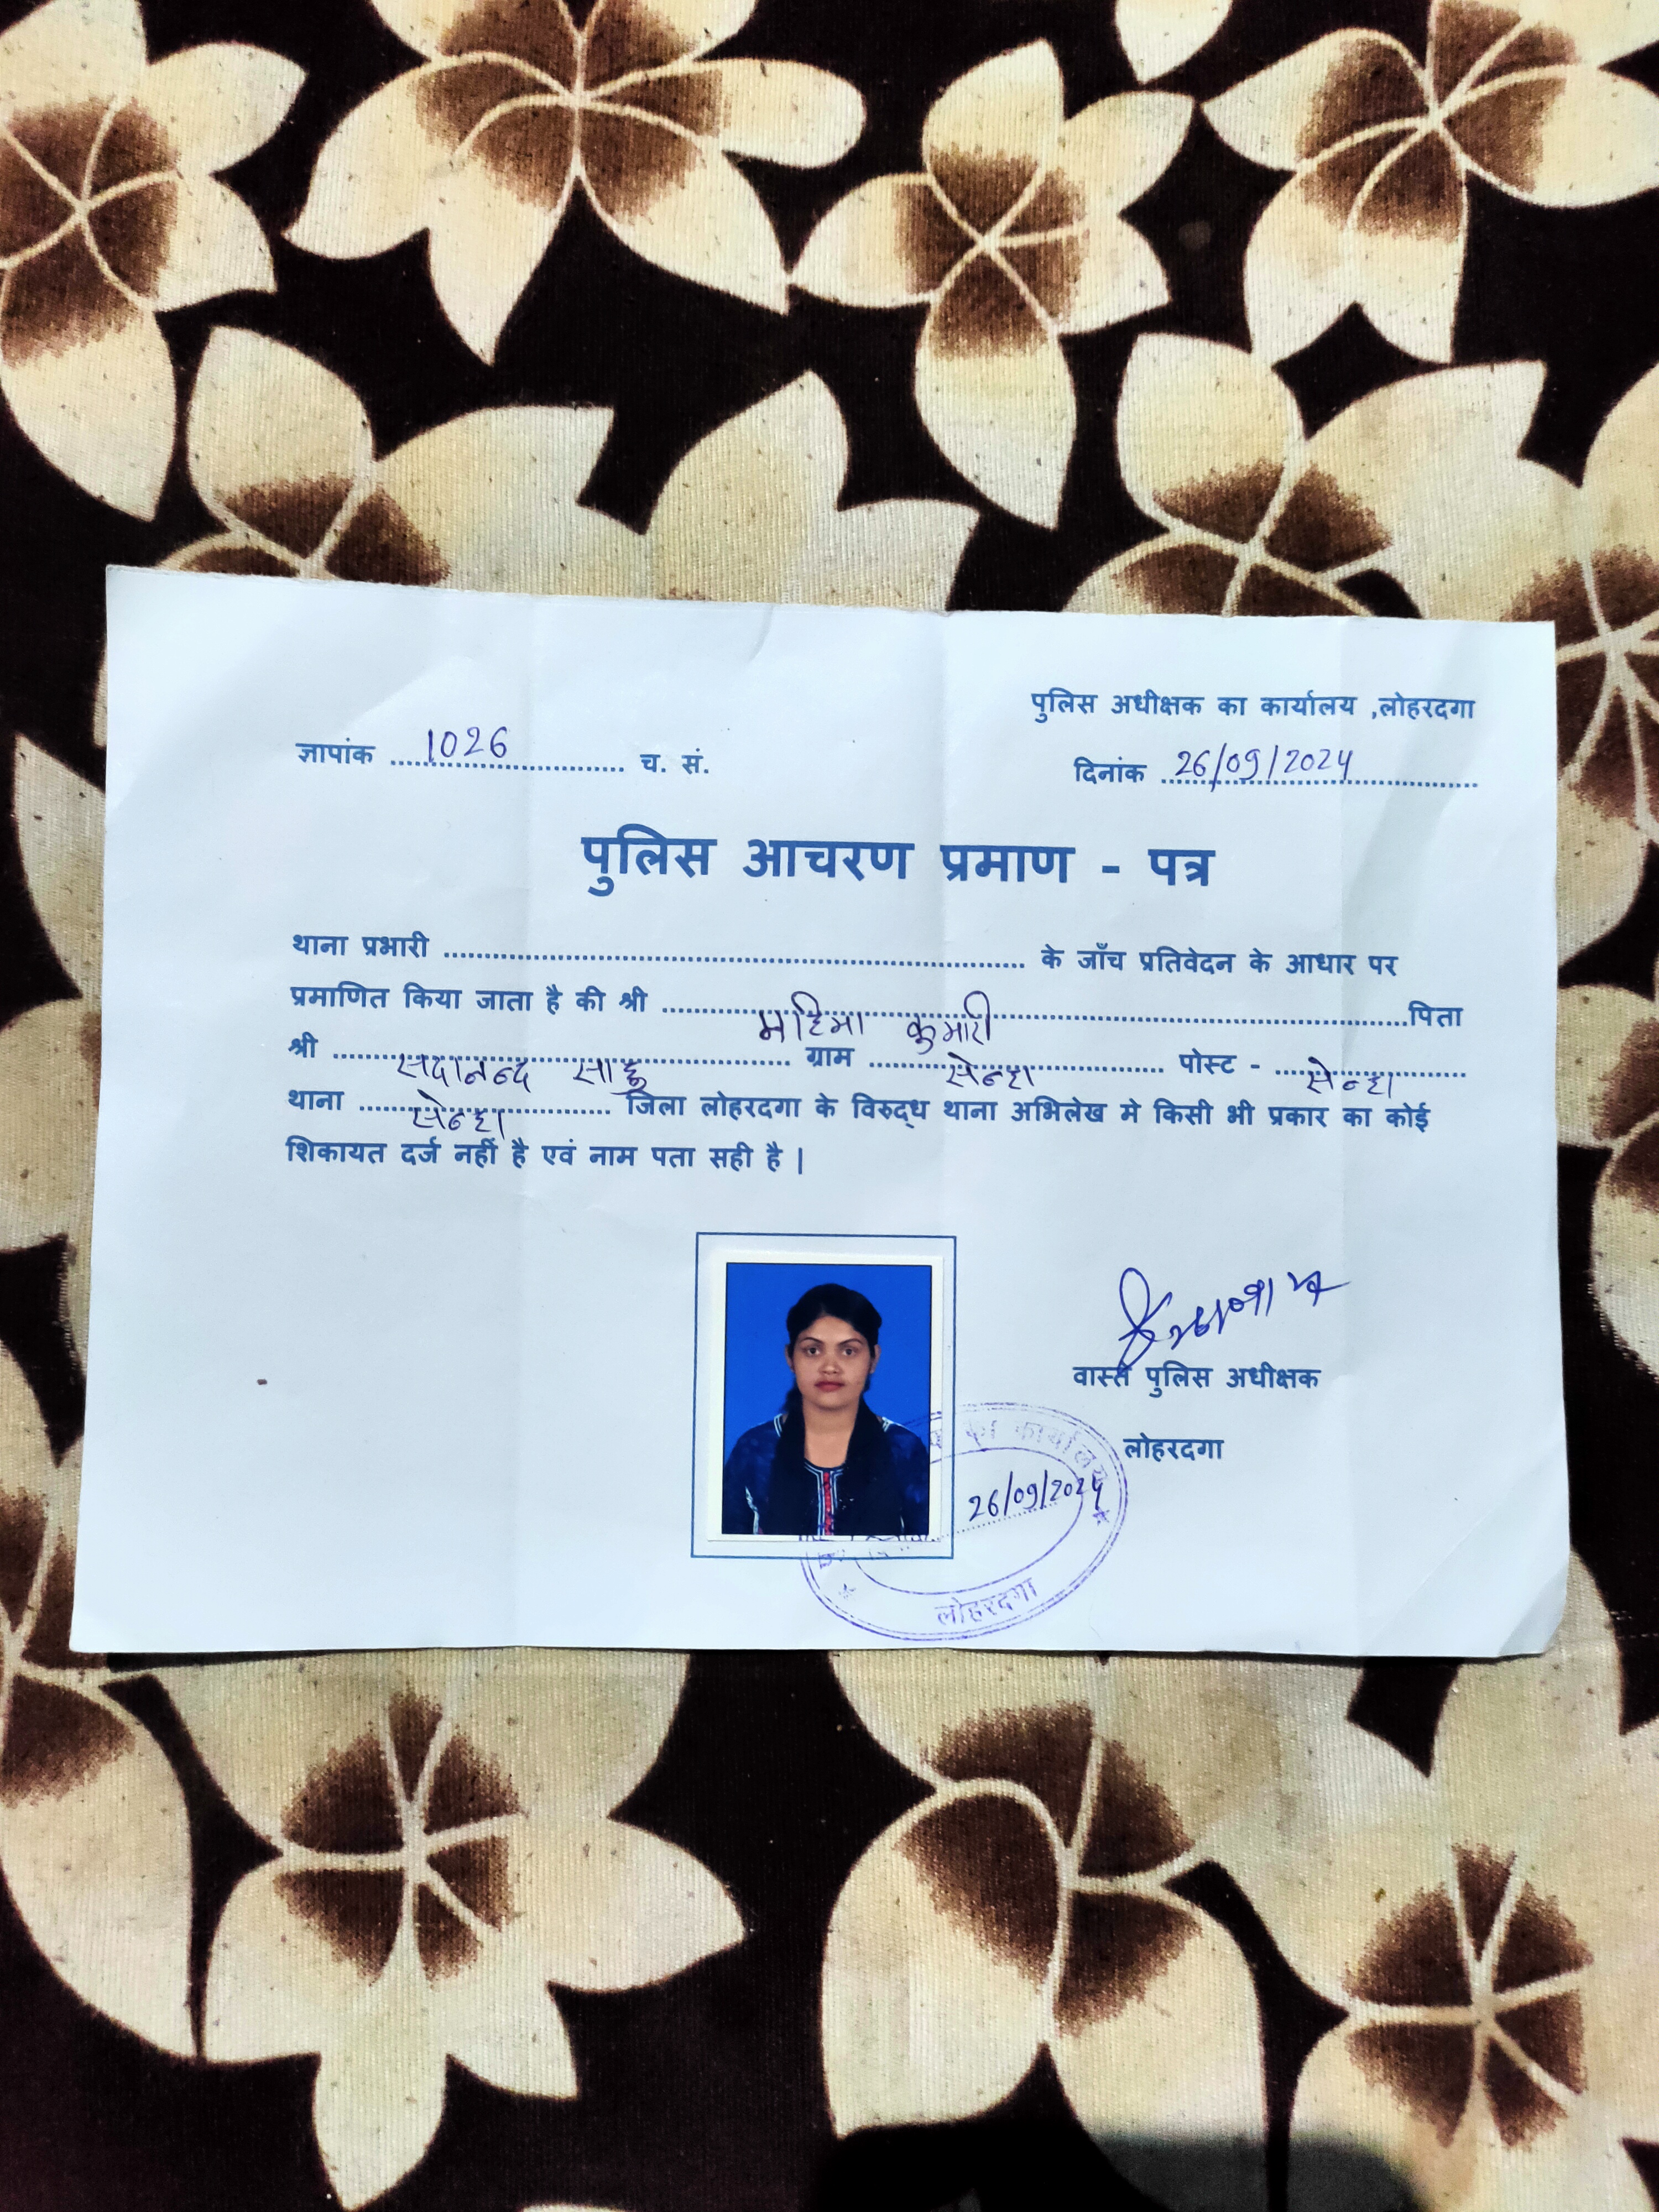 पुलिस अधीक्षक का कार्यालय ,लोहरदगा
ज्ञापांक ....1026.... च. सं.
दिनांक 26/09/2024
पुलिस आचरण प्रमाण - पत्र
थाना प्रभारी ........ के जाँच प्रतिवेदन के आधार पर
प्रमाणित किया जाता है की श्री ....महिमा कुमारी.... पिता
श्री ....सदानन्द साहू.... ग्राम ....सेन्हा.... पोस्ट - ....सेन्हा....
थाना ....सेन्हा.... जिला लोहरदगा के विरुद्ध थाना अभिलेख मे किसी भी प्रकार का कोई
शिकायत दर्ज नहीं है एवं नाम पता सही है |
वास्ते पुलिस अधीक्षक
लोहरदगा
का कार्यालय
26/09/2024
लोहरदगा